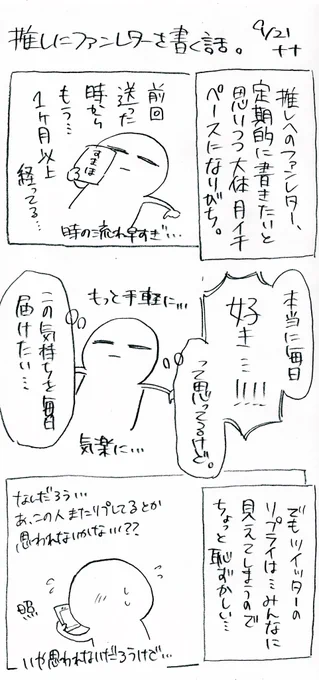 推しにファンレターを書く話。
9/21
++
推しへのファンレター、
定期的に書きたいと
思いつつ大体月イチ
ペースになりがち。
前回
送った
時から
もう…
1ヶ月以上
経ってる…
すまほ
時の流れ早すぎ…
本当に毎日
好き…!!!!
って思ってるけど。
もっと手軽に…
気楽に…
この気持ちを毎日
届けたい…
でもツイッターの
リプライは…みんなに
見えてしまうので
ちょっと恥ずかしい…
なんだろう…
あ、この人またリプしてるとか
思われないかな…??
照
いや思われないだろうけど…